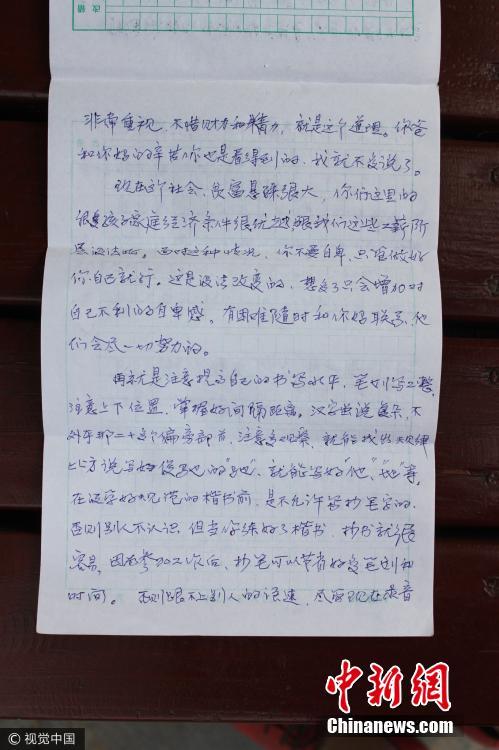 非常重视，不惜财力和精力，就是这个道理。你爸
和你妈的辛苦你也是看得到的，我就不多说了。
现在这个社会，贫富悬殊很大，你们这里的
很多孩子家庭经济条件很优越，跟我们这些工薪阶
层没法比。面对这种情况，你不要自卑，只准做好
你自己就行。这是没法改变的，想多了只会增加对
自己不利的自卑感。有困难随时和你妈联系，他
们会尽一切努力的。
再就是注意提高自己的书写水平，笔划写工整，
注意上下位置，掌握好间隔距离。汉字虽说复杂，不
外乎那二十多个偏旁部首，注意多观察，就能找出规律
比方说写好侵地的“地”，就能写好“他”、“她”等，
在没写好规范的楷书前，是不允许写抄笔字的，
否则别人不认识，但当你练好了楷书，抄书就很
容易，因为参加工作后，抄笔可以节省好多笔划和
时间。否则跟不上别人的语速，尽管现在录音
中新网
Chinanews.com
© 视觉中国